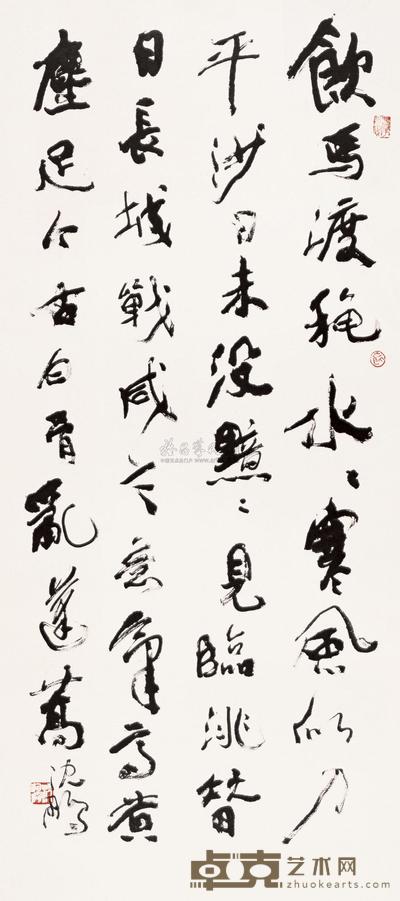 飲馬渡秋水〻寒風似刀
平沙日未沒黯〻見臨洮昔
日長城戰咸言意氣高黃
塵足今古白骨亂蓬蒿
沈鵬
卓克艺术网
zhuokearts.com